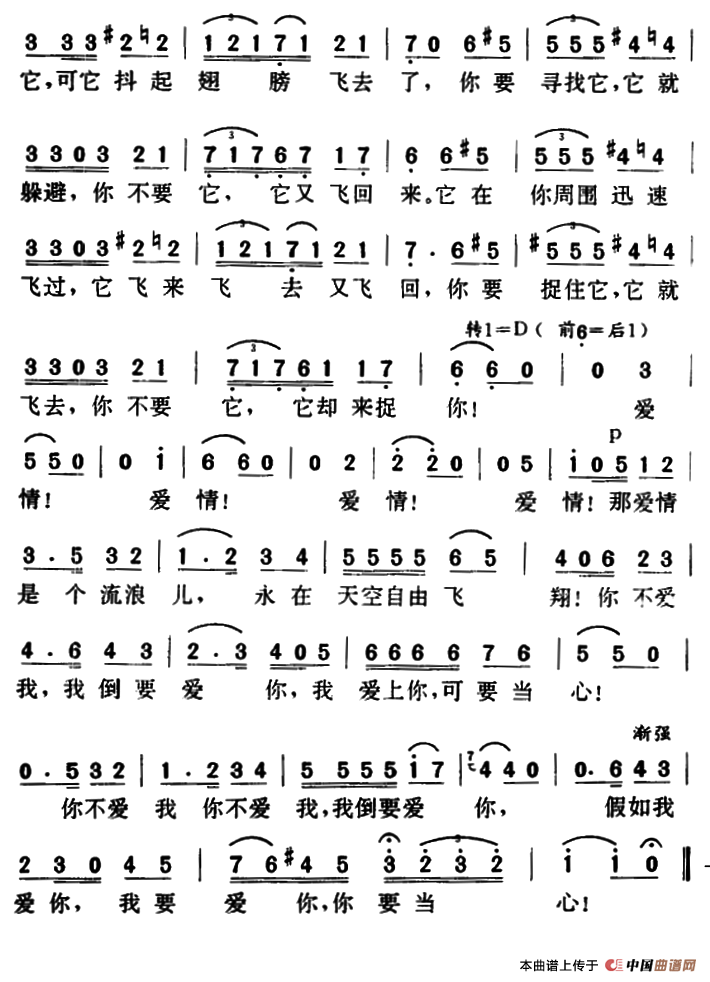 3 3 3 3 #2 ♮2 | 1 2 1 7 1 2 1 | 7 0 6 #5 | 5 5 5 #4 ♮4
它,可它 抖起 翅 膀 飞去 了, 你要 寻找它,它就
3 3 0 3 2 1 | 7 1 7 6 7 1 7 | 6 6 #5 | 5 5 5 #4 ♮4
躲避, 你 不要 它, 它又飞回 来。它在 你周围 迅速
3 3 0 3 #2 ♮2 | 1 2 1 7 1 2 1 | 7 · 6 #5 | 5 5 5 #4 ♮4
飞过,它 飞来 飞 去 又飞 回, 你要 捉住它,它就
转1=D( 前6=后1)
3 3 0 3 2 1 | 7 1 7 6 1 1 7 | 6 6 0 | 0 3 |
飞去, 你 不要 它, 它却来捉 你! 爱
p
5 5 0 | 0 i | 6 6 0 | 0 2 | 2 2 0 | 0 5 | i 0 5 1 2
情! 爱 情! 爱 情! 爱 情!那爱情
3 · 5 3 2 | 1 · 2 3 4 | 5 5 5 5 6 5 | 4 0 6 2 3 |
是 个 流浪 儿, 永在 天空自由飞 翔!你 不爱
4 · 6 4 3 | 2 · 3 4 0 5 | 6 6 6 6 7 6 | 5 5 0 |
我,我倒要 爱 你,我 爱上你,可要当 心!
渐强
0 · 5 3 2 | 1 · 2 3 4 | 5 5 5 5 i 7 | 4 4 0 | 0 · 6 4 3 |
你不爱 我 你不爱 我,我倒要爱 你, 假如我
2 3 0 4 5 | 7 6 #4 5 3 2 3 2 | i i 0 ‖
爱你, 我要 爱 你,你 要当 心!
本曲谱上传于 中国曲谱网